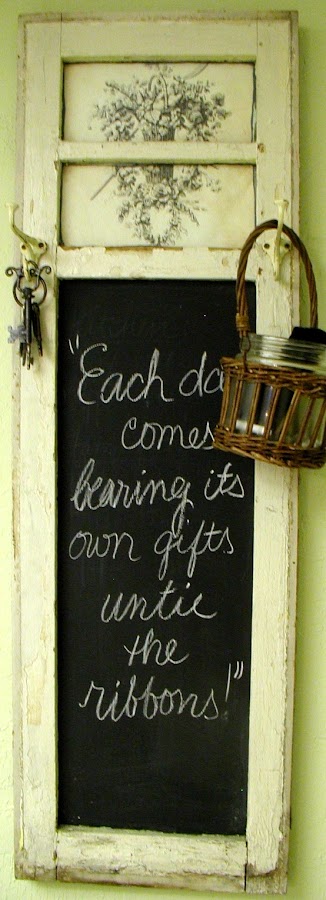 "Each da
comes
bearing its
own gifts
untie
the
ribbons!"